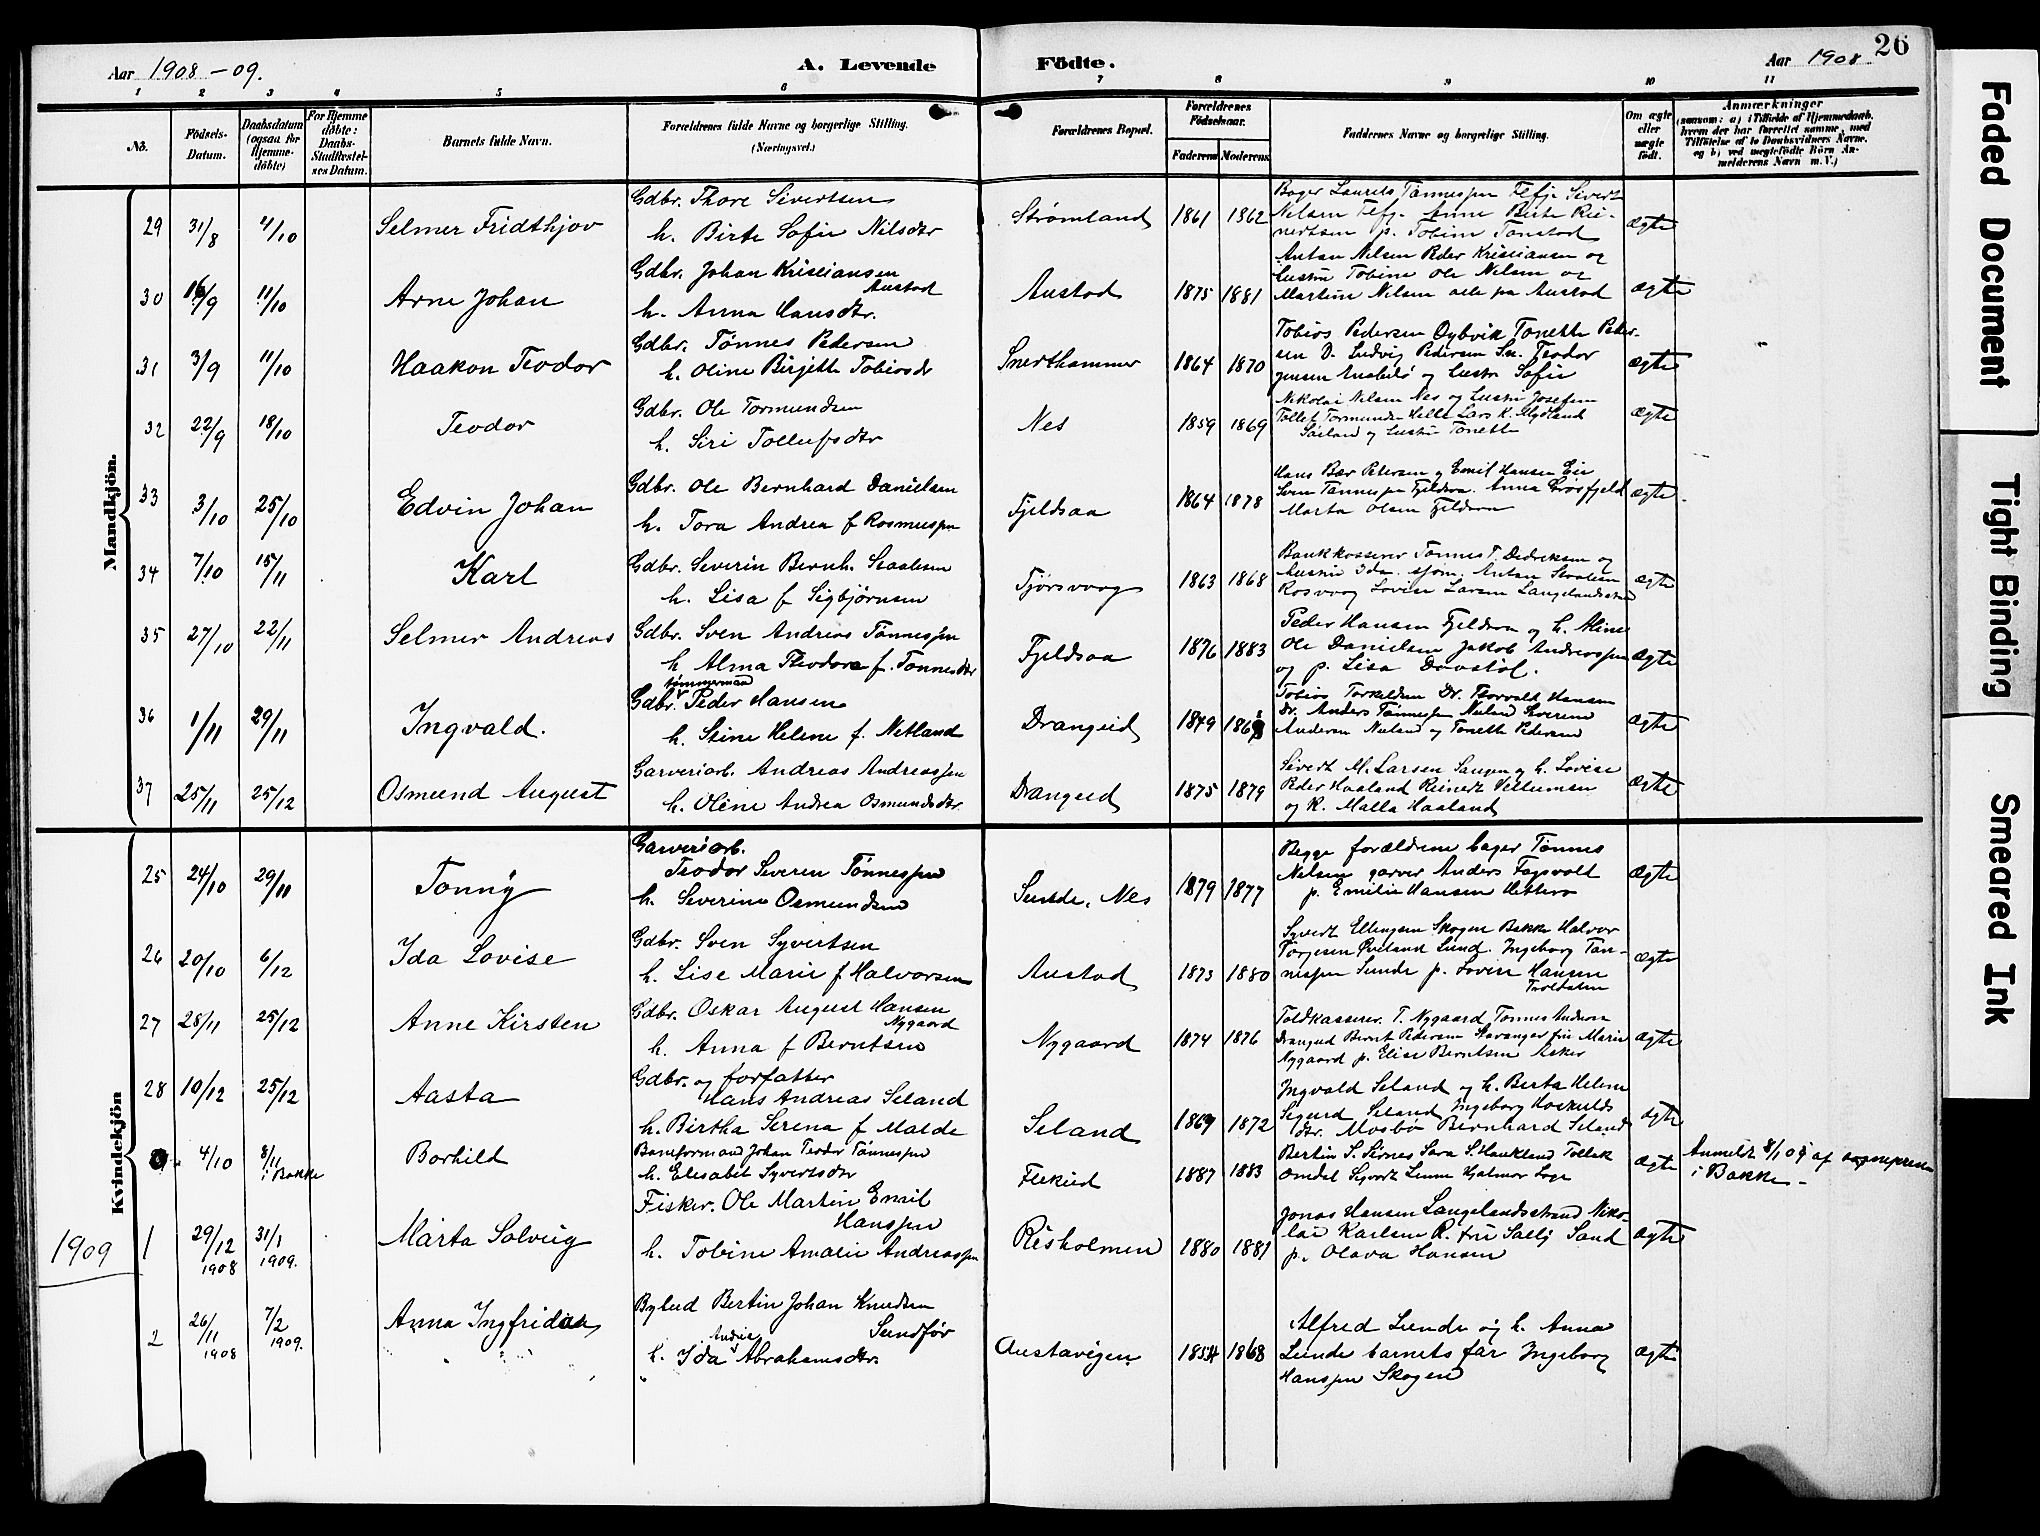 Aar 1908-09.
A. Levende
Födte.
Aar 1908
26
1 2 3 4 5 6 7 8 9 10 11
No.
Födsels-Datum.
Daabsdatum (ogsaa for Hjemme-döbte)
For Hjemme döbte: Daabs-Stadfæstel-ses Datum.
Barnets fulde Navn.
Forældrenes fulde Navne og borgerlige Stilling.
(Næringsvei.)
Forældrenes Bopæl.
Forældrenes Födselsaar.
Faderens Moderens
Faddernes Navne og borgerlige Stilling.
Om ægte eller uægte födt.
Anmærkninger
(saasom: a) i Tilfælde af Hjemmedaab, hvem der har forrettet samme, med Tilföielse af to Daabsvidners Navne, og b) ved uægtefödte Börn An-melderens Navn m. V.)
Mandkjön.
29 31/8 4/10 Selmer Fridthjov
Gdbr. Thore Sivertsen
h. Birte Sofie Nilsdtr
Strømland 1861 1862
Bager Laurits Tønnessen Fefj. Sivert
Nelsen Fefj. Anne Birte Rei-
nertsen p. Tobine Tonstad
ægte
30 16/9 11/10 Arne Johan
Gdbr. Johan Kristiansen
Austad
h. Anna Hansdtr.
Austad 1875 1881
Antan Nilsen Peder Kristiansen og
hustru Tobine Ole Nilsen og
Martine Nilsen alle pa Austad
ægte
31 3/9 11/10 Haakon Teodor
Gdbr. Tønnes Pedersen
h. Oline Birgitte Tobiasdr
Snerthammer 1864 1870
Tobias Pedersen Øybvik Tonette Peder-
sen D. Ludvig Pedersen Sn. Teodor
Jensen Anabelø og hustr Sofie
ægte
32 22/9 18/10 Teodor
Gdbr. Ole Tormundsen
h. Siri Tollefsdtr
Nes 1859 1869
Nikolai Nilsen Nes og hustru Josefine
Tollef Tormunds. Helle Lars K. Glydland
og hustru Tonette
ægte
33 3/10 25/10 Edvin Johan
Gdbr. Ole Bernhard Danielsen
h. Tora Andrea f Rasmussen
Fjeldsaa 1864 1878
Hans Bær Petersen og Emil Hansen Eie
Sven Tønnessen Fjeldsaa. Anna Grøsfjeld
Marta Olsen Fjeldsaa
ægte
34 7/10 15/11 Karl
Gdbr. Severin Bernh. Staalesen
h. Lisa f Sigbjørnsen
Tjørsvaag 1863 1868
Bankkasserer Tønnes T. Dedreksen og
hustru Ida. sjøm. Antan Staalesen
Rosvaag Lovise Larsen Langelandsstrd
ægte
35 27/10 22/11 Selmer Andreas
Gdbr. Sven Andreas Tønnessen
h Alma Theodora f. Tønnesdtr
Fjeldsaa 1876 1883
Peder Hansen Fjeldsaa og h. Aline
Ole Danielsen Jakob Andreassen
og p. Lisa Davstøl.
ægte
36 1/11 29/11 Ingvald.
tømmermand
Gdbr. Peder Hansen
h. Stine Helene f. Netland
Drangeid 1849
Tobias Torkeldsen Dr. Thorvald Hansen
Dr. Anders Tønnessen Nuland Severine
Andersen Nuland og Tonette Pedersen
ægte
37 25/11 25/12 Osmund August
Garveriarb. Andreas Andreassen
h. Oline Andrea Osmundsdtr.
Drangeid 1875 1879
Sivert M. Larsen og h. Lovise
Peder Haaland Reinert Velleman
og K. Malla Haaland
ægte
Kvindekjön
25 24/10 29/11 Tonny
Garveriarb.
Teodor Severen Tønnessen
h. Severine Osmundsen
Sunde, Nes 1879 1877
Begge forældrene bager Tønnes
Nelsen garver Anders Fagsvolt
p. Emilie Hansen Hitterø
ægte
26 20/10 6/12 Ida Lovise
Gdbr. Sven Syvertsen
h. Lise Marie f Halvorsen
Austad 1873 1880
Syvert Ellingsen Skogen Bakke Halvor
Torgesen Øveland Lund. Ingeborg Tøn-
nessen Sunde p. Lovise Hansen
Troldalen
ægte
27 28/11 25/12 Anne Kirsten
Gdbr. Oskar August Hansen
Nygaard
h. Anna f Berntsen
Nygaard 1874 1876
Toldkasserer T. Nygaard Tønnes Andersen
Drangeid Bernt Pedersen Stavanger fru Marie
Nygaard p. Elise Berntsen Asker
ægte
28 10/12 25/12 Aasta
Gdbr. og forfatter
Hans Andreas Seland
h. Birtha Serena f Malde
Seland 1869 1872
Ingvald Seland og h. Berta Helene
Sigurd Seland Ingeborg Hoskulds
dtr. Mosbø Bernhard Seland
ægte
4/10 8/11 i Bakke Borhild
Baneformand Johan Teodor Tønnessen
h. Elesabet Syvertsdtr
Flekeid 1887 1883
Bertin S. Sirnes Sara S. Haukland Tollak
Omdal Syvert Lunne Hjalmar Loge
ægte
Anmeldt 8/1 09 af sognepresten
i Bakke -
1909
1 29/12 1908 31/1 1909. Marta Solveig
Fisker. Ole Martin Emil
Hanssen
h. Tobine Amalie Andreassen
Risholmen 1880 1881
Jonas Hansen Langelandsstrand Niko-
lai Karlsen R. fru Sally Sand
p. Olava Hansen
ægte
2 26/11 1908 7/2 1909. Anna Ingfrida
Bybud Bertin Johan Knudsen
Sundför
h. Ida Andrea Abrahamsdtr.
Austavigen 1854 1868
Alfred Lunde og h. Anna
Lunde barnets far Ingeborg
Hanssen Skogen
ægte
Faded Document
Tight Binding
Smeared Ink